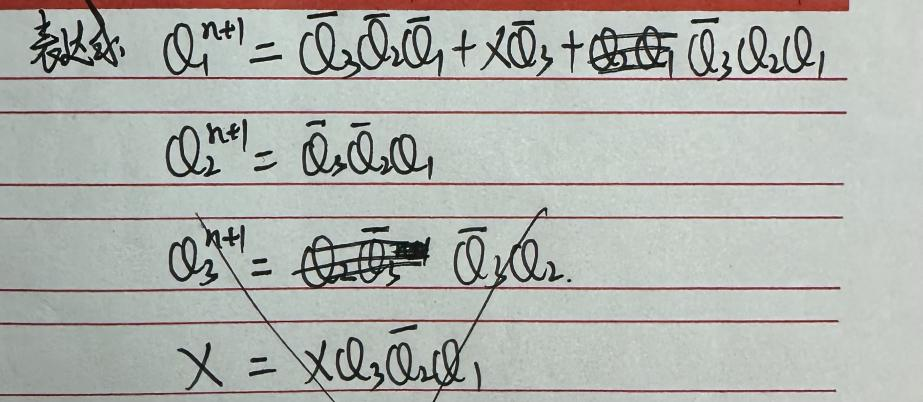 表达式: Q₁ⁿ⁺¹ = Q̅₃Q̅₂Q̅₁ + XQ̅₃ + Q̅₃Q₂Q₁
Q₂ⁿ⁺¹ = Q̅₃Q̅₂Q₁
Q₃ⁿ⁺¹ = Q̅₃Q₂.
X = XQ₃Q̅₂Q₁